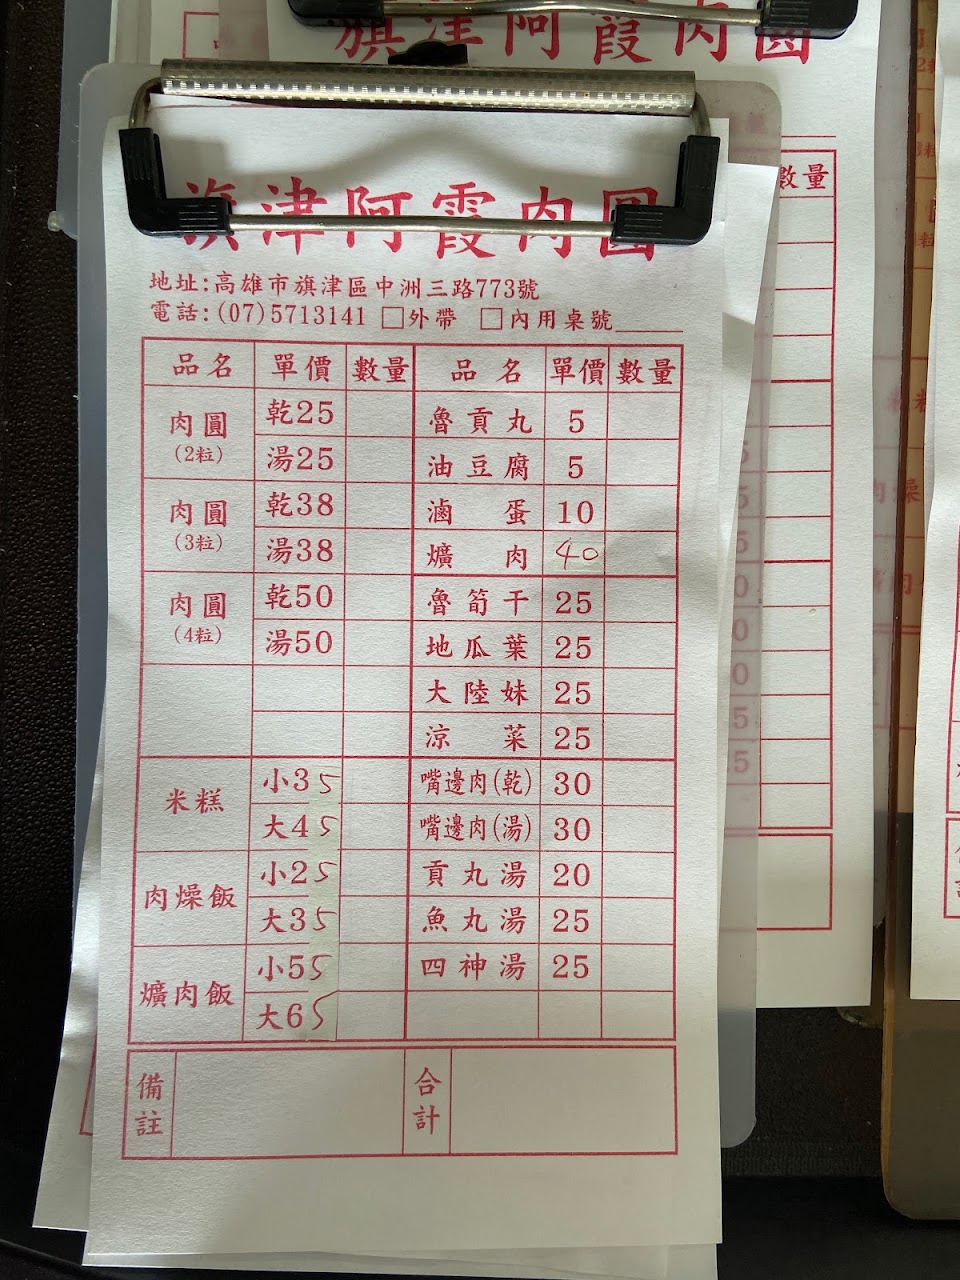 旗津阿霞肉圓
旗津阿霞肉圓
地址:高雄市旗津區中洲三路773號
電話:(07)5713141 □外帶 □內用桌號
品名 單價 數量 品名 單價 數量
肉圓(2粒) 乾25 魯貢丸 5
湯25 油豆腐 5
肉圓(3粒) 乾38 滷蛋 10
湯38 爌肉 40
肉圓(4粒) 乾50 魯筍干 25
湯50 地瓜葉 25
大陸妹 25
涼菜 25
米糕 小35 嘴邊肉(乾) 30
大45 嘴邊肉(湯) 30
肉燥飯 小25 貢丸湯 20
大35 魚丸湯 25
爌肉飯 小55 四神湯 25
大65
備註 合計
數量